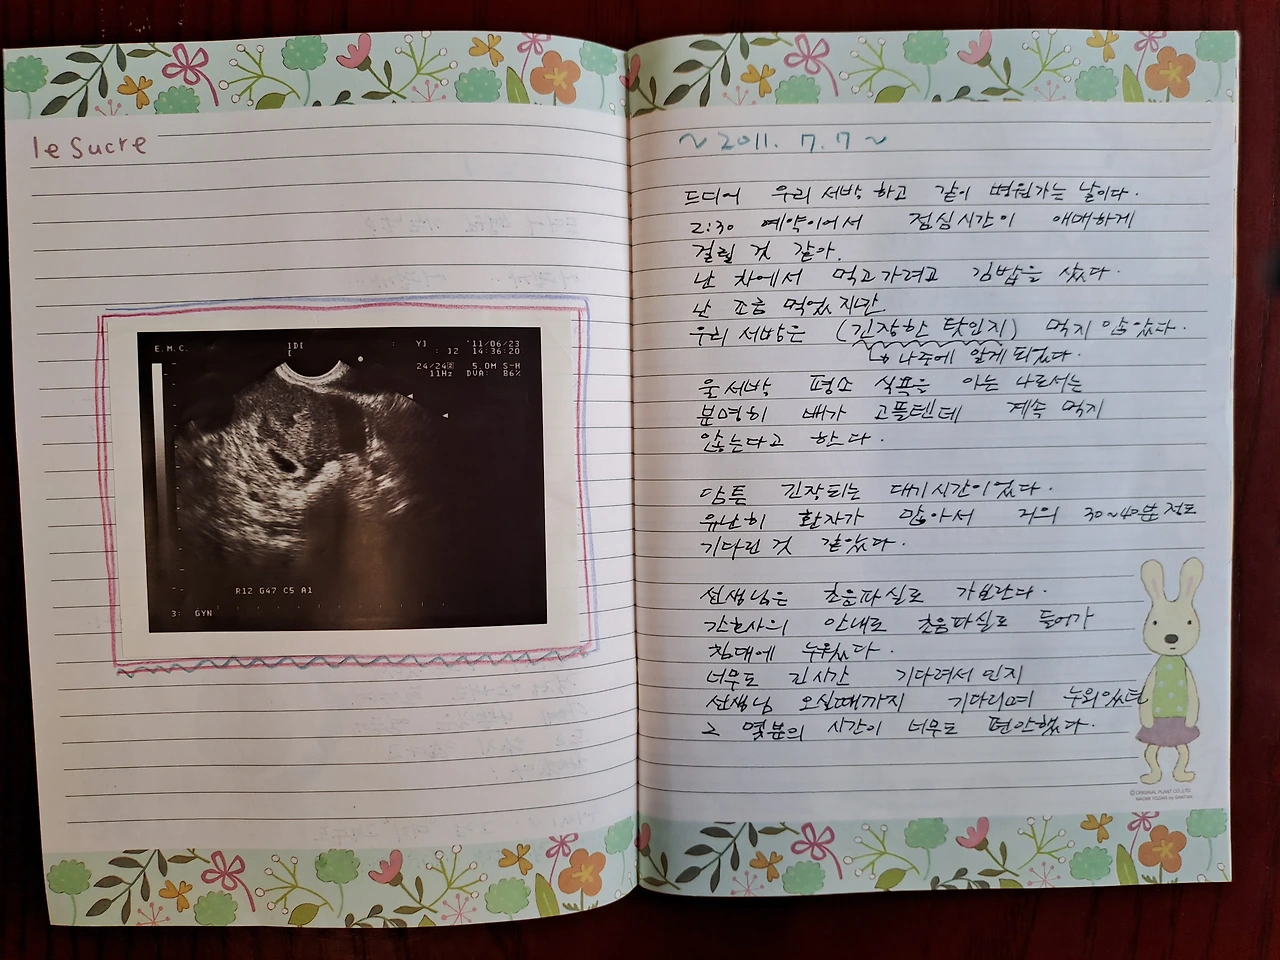 le Sucre
E.M.C.
IDI
[
: YJ '11/06/23
: 12 14:36:20
24/24 5.0M S-H
11Hz DVA: 86%
R12 G47 C5 A1
3: GYN
~ 2011. 7. 7 ~
드디어 우리 서방 하고 같이 병원가는 날이다.
2:30 예약이어서 점심시간이 애매하게
걸릴 것 같아.
난 차에서 먹고가려고 김밥을 샀다.
난 조금 먹었지만
우리 서방은 (긴장한 탓인지) 먹지 않았다.
↳ 나중에 알게 되었다.
울 서방 평소 식품을 아는 나로서는
분명히 배가 고플텐데 계속 먹지
않는다고 한다.
암튼 긴장되는 대기시간이었다.
유난히 환자가 많아서 거의 30~40분 정도
기다린 것 같았다.
선생님은 초음파실로 가보란다.
간호사의 안내로 초음파실로 들어가
침대에 누웠다.
너무도 긴시간 기다려서 인지
선생님 오실때까지 기다리며 누워있던
그 몇분의 시간이 너무도 편안했다.
©ORIGINAL PLANT CO.,LTD.